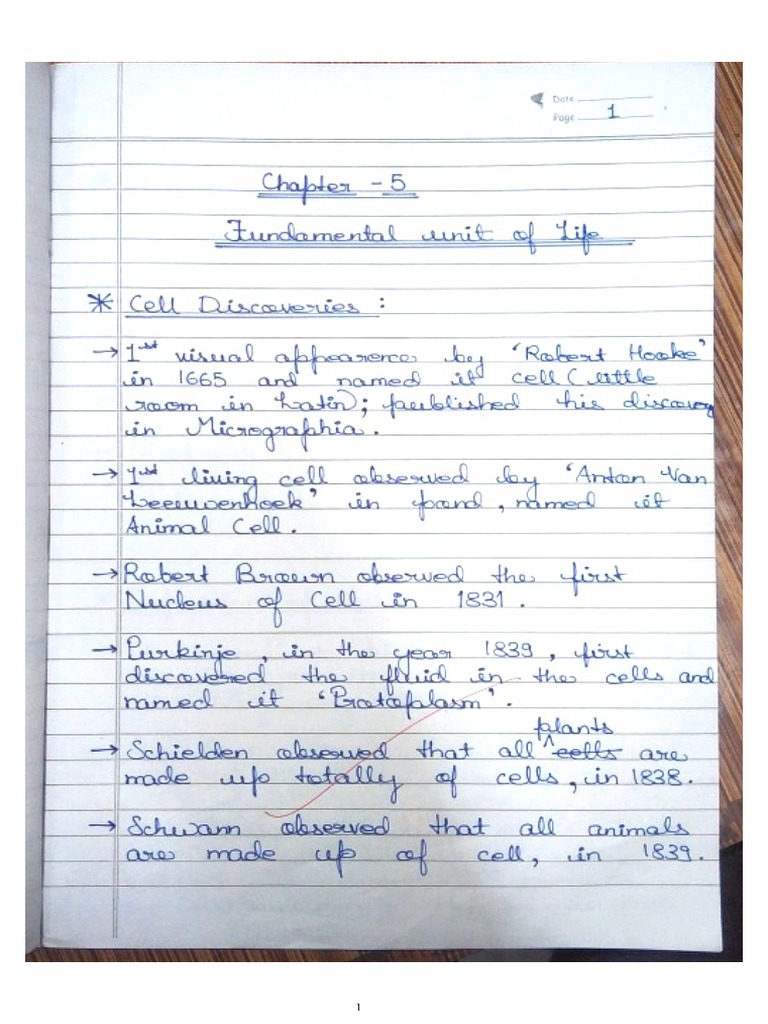 Date
Page 1
Chapter - 5
Fundamental unit of Life
* Cell Discoveries :
→ 1st visual appearence by 'Robert Hooke'
in 1665 and named it cell (little
room in Latin); published his discovery
in Micrographia.
→ 1st living cell observed by 'Anton Van
Leeuwenhoek' in pond, named it
Animal Cell.
→ Robert Brown observed the first
Nucleus of Cell in 1831.
→ Purkinje, in the year 1839, first
discovered the fluid in the cells and
named it 'Protoplasm'.
plants
→ Schielden observed that all ^ cells are
made up totally of cells, in 1838.
→ Schwann observed that all animals
are made up of cell, in 1839.
1